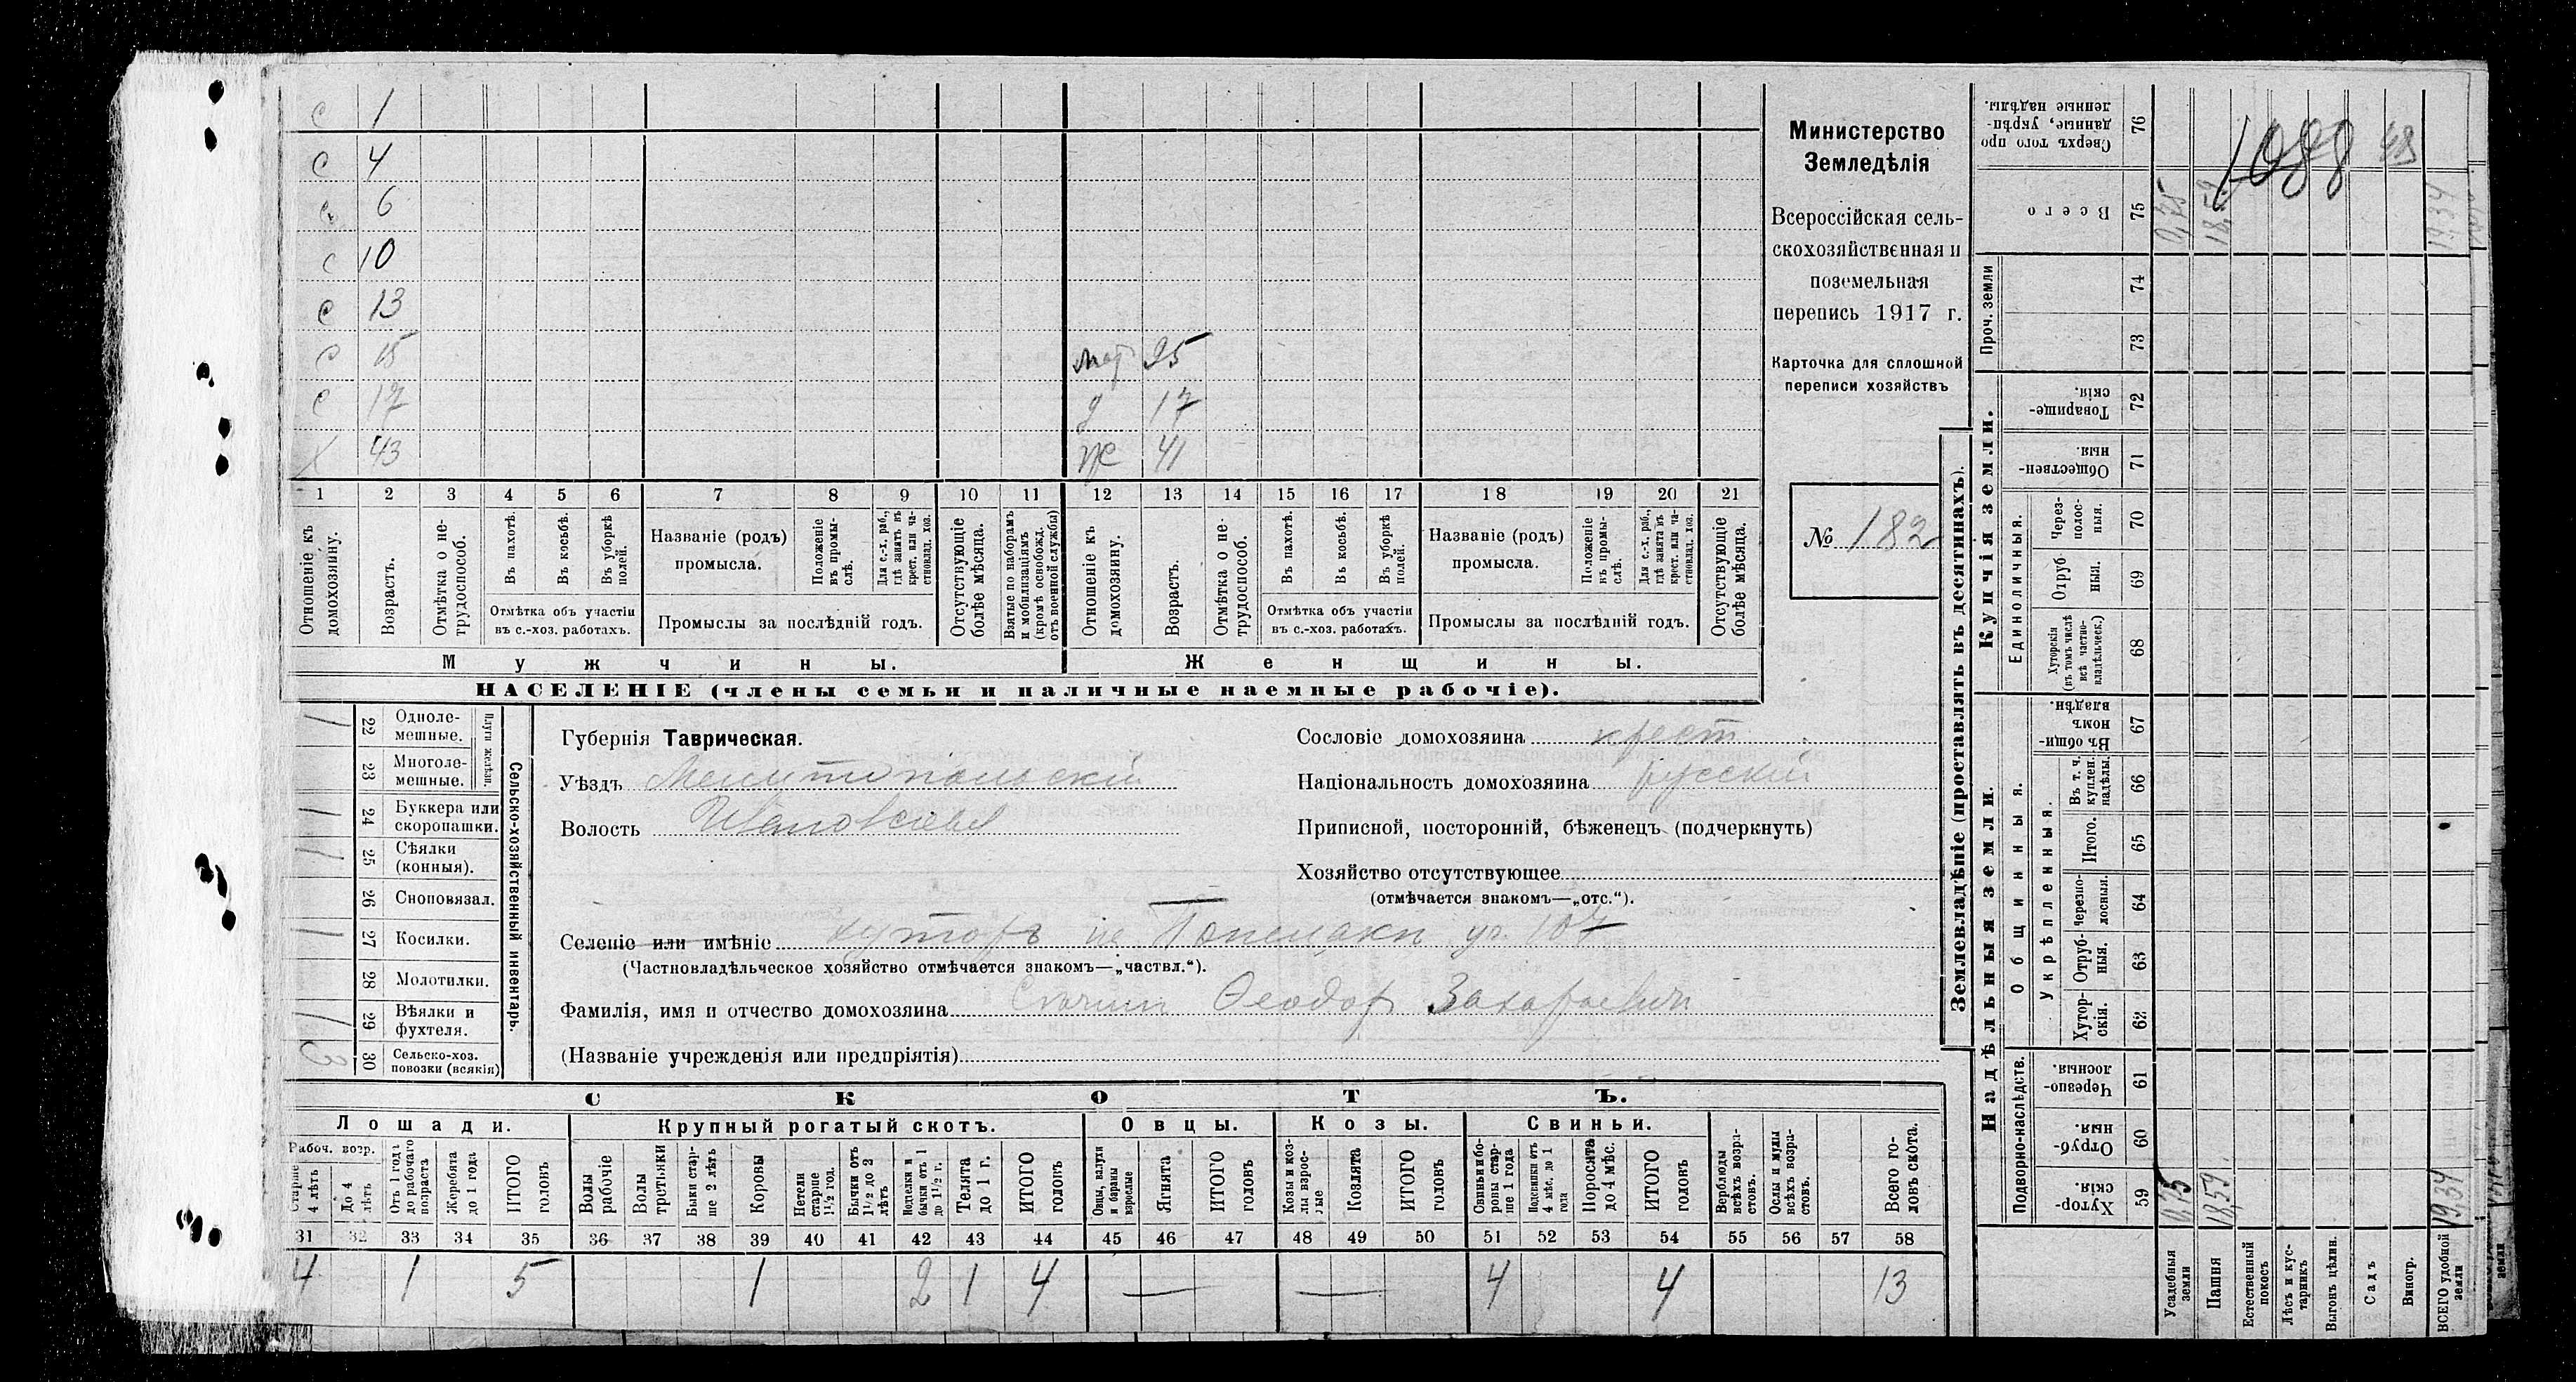 с 1
с 4
с 6
с 10
с 13
с 15 мат 95
с 17 д 17
х 43 ж 41
1 2 3 4 5 6 7 8 9 10 11 12 13 14 15 16 17 18 19 20 21
Отношеніе къ домохозяину.
Возрастъ.
Отмѣтка о не-трудоспособ.
Въ пахотѣ.
Въ косьбѣ.
Въ уборкѣ полей.
Отмѣтка объ участіи
въ с.-хоз. работахъ.
Названіе (родъ)
промысла.
Положеніе въ промы-слѣ.
Для с.-х. раб., гдѣ занятъ въ крест. или ча-стновлад. хоз.
Промыслы за послѣдній годъ.
Отсутствующіе болѣе мѣсяца.
Взятые по наборамъ и мобилизаціямъ (кромѣ освобожд. отъ военной службы)
Отношеніе къ домохозяину.
Возрастъ.
Отмѣтка о не-трудоспособ.
Въ пахотѣ.
Въ косьбѣ.
Въ уборкѣ полей.
Отмѣтка объ участіи
въ с.-хоз. работахъ.
Названіе (родъ)
промысла.
Положеніе въ промы-слѣ.
Для с.-х. раб., гдѣ занята въ крест. или ча-стновлад. хоз.
Промыслы за послѣдній годъ.
Отсутствующіе болѣе мѣсяца.
Мужчины. Женщины.
НАСЕЛЕНІЕ (члены семьи и наличные наемные рабочіе).
Министерство
Земледѣлія
Всероссійская сель-
скохозяйственная и
поземельная
перепись 1917 г.
Карточка для сплошной
переписи хозяйствъ
№ 182
Сельско-хозяйственный инвентарь.
Плуги желѣзн.
1 22 Одноле-мешные.
23 Многоле-мешные.
1 24 Буккера или скоропашки.
1 25 Сѣялки (конныя).
26 Сноповязал.
1 27 Косилки.
28 Молотилки.
1 29 Вѣялки и фухтеля.
3 30 Сельско-хоз. повозки (всякія)
Губернія Таврическая.
Уѣздъ Мелитопольскій
Волость Ивановская
Сословіе домохозяина крест
Національность домохозяина русскій
Приписной, посторонній, бѣженецъ (подчеркнуть)
Хозяйство отсутствующее
(отмѣчается знакомъ—„отс.“).
Селеніе или имѣніе хуторъ 107
(Частновладѣльческое хозяйство отмѣчается знакомъ—„частвл.“).
Фамилія, имя и отчество домохозяина Ѳеодор Захарьевич
(Названіе учрежденія или предпріятія)
СКОТЪ.
Лошади. Крупный рогатый скотъ. Овцы. Козы. Свиньи.
Рабоч. возр.
Старше 4 лѣтъ
До 4 лѣтъ
Отъ 1 года до рабочаго возраста
Жеребята до 1 года
ИТОГО головъ
Волы рабочіе
Волы третьяки
Быки стар-ше 2 лѣтъ
Коровы
Нетели старше 1½ год.
Бычки отъ 1½ до 2 лѣтъ
Нетелки и бычки отъ 1 до 1½ г.
Телята до 1 г.
ИТОГО головъ
Овцы, валухи и бараны взрослые
Ягнята
ИТОГО головъ
Козы и коз-лы взрос-лые
Козлята
ИТОГО головъ
Свиньи и бо-ровы стар-ше 1 года
Подсвинки отъ 4 мѣс. до 1 года
Поросята до 4 мѣс.
ИТОГО головъ
Верблюды всѣхъ возра-стовъ.
Ослы и мулы всѣхъ возра-стовъ.
Всего го-ловъ скота.
31 32 33 34 35 36 37 38 39 40 41 42 43 44 45 46 47 48 49 50 51 52 53 54 55 56 57 58
4 1 5 1 2 1 4 — — 4 4 13
Землевладѣніе (проставлять въ десятинахъ).
Купчія земли.
Надѣльныя земли.
Проч. земли
Единоличныя.
Общинныя.
Укрѣпленныя.
Подворно-наслѣдств.
Сверхъ того про данные, укрѣп-ленные надѣлы. 76
Всего 75 0,75 18,59 19,34
1088 48
74
73
Товарище-скія. 72
Обществен-ныя. 71
Через-полос-ныя. 70
Отруб-ныя. 69
Хуторскія (въ томъ числѣ всѣ частно-владѣльческ.) 68
Въ общи-номъ владѣн. 67
Въ т. ч. куплен. надѣлы. 66
Итого. 65
Черезпо-лосныя. 64
Отруб-ныя. 63
Хутор-скія. 62
Черезпо-лосныя. 61
Отруб-ныя. 60
Хутор-скія. 59 0,75 18,59 19,34
Усадебныя земли
Пашня
Естественный покосъ
Лѣсъ и кус-тарникъ
Выгонъ цѣлин.
Садъ
Виногр.
ВСЕГО удобной земли